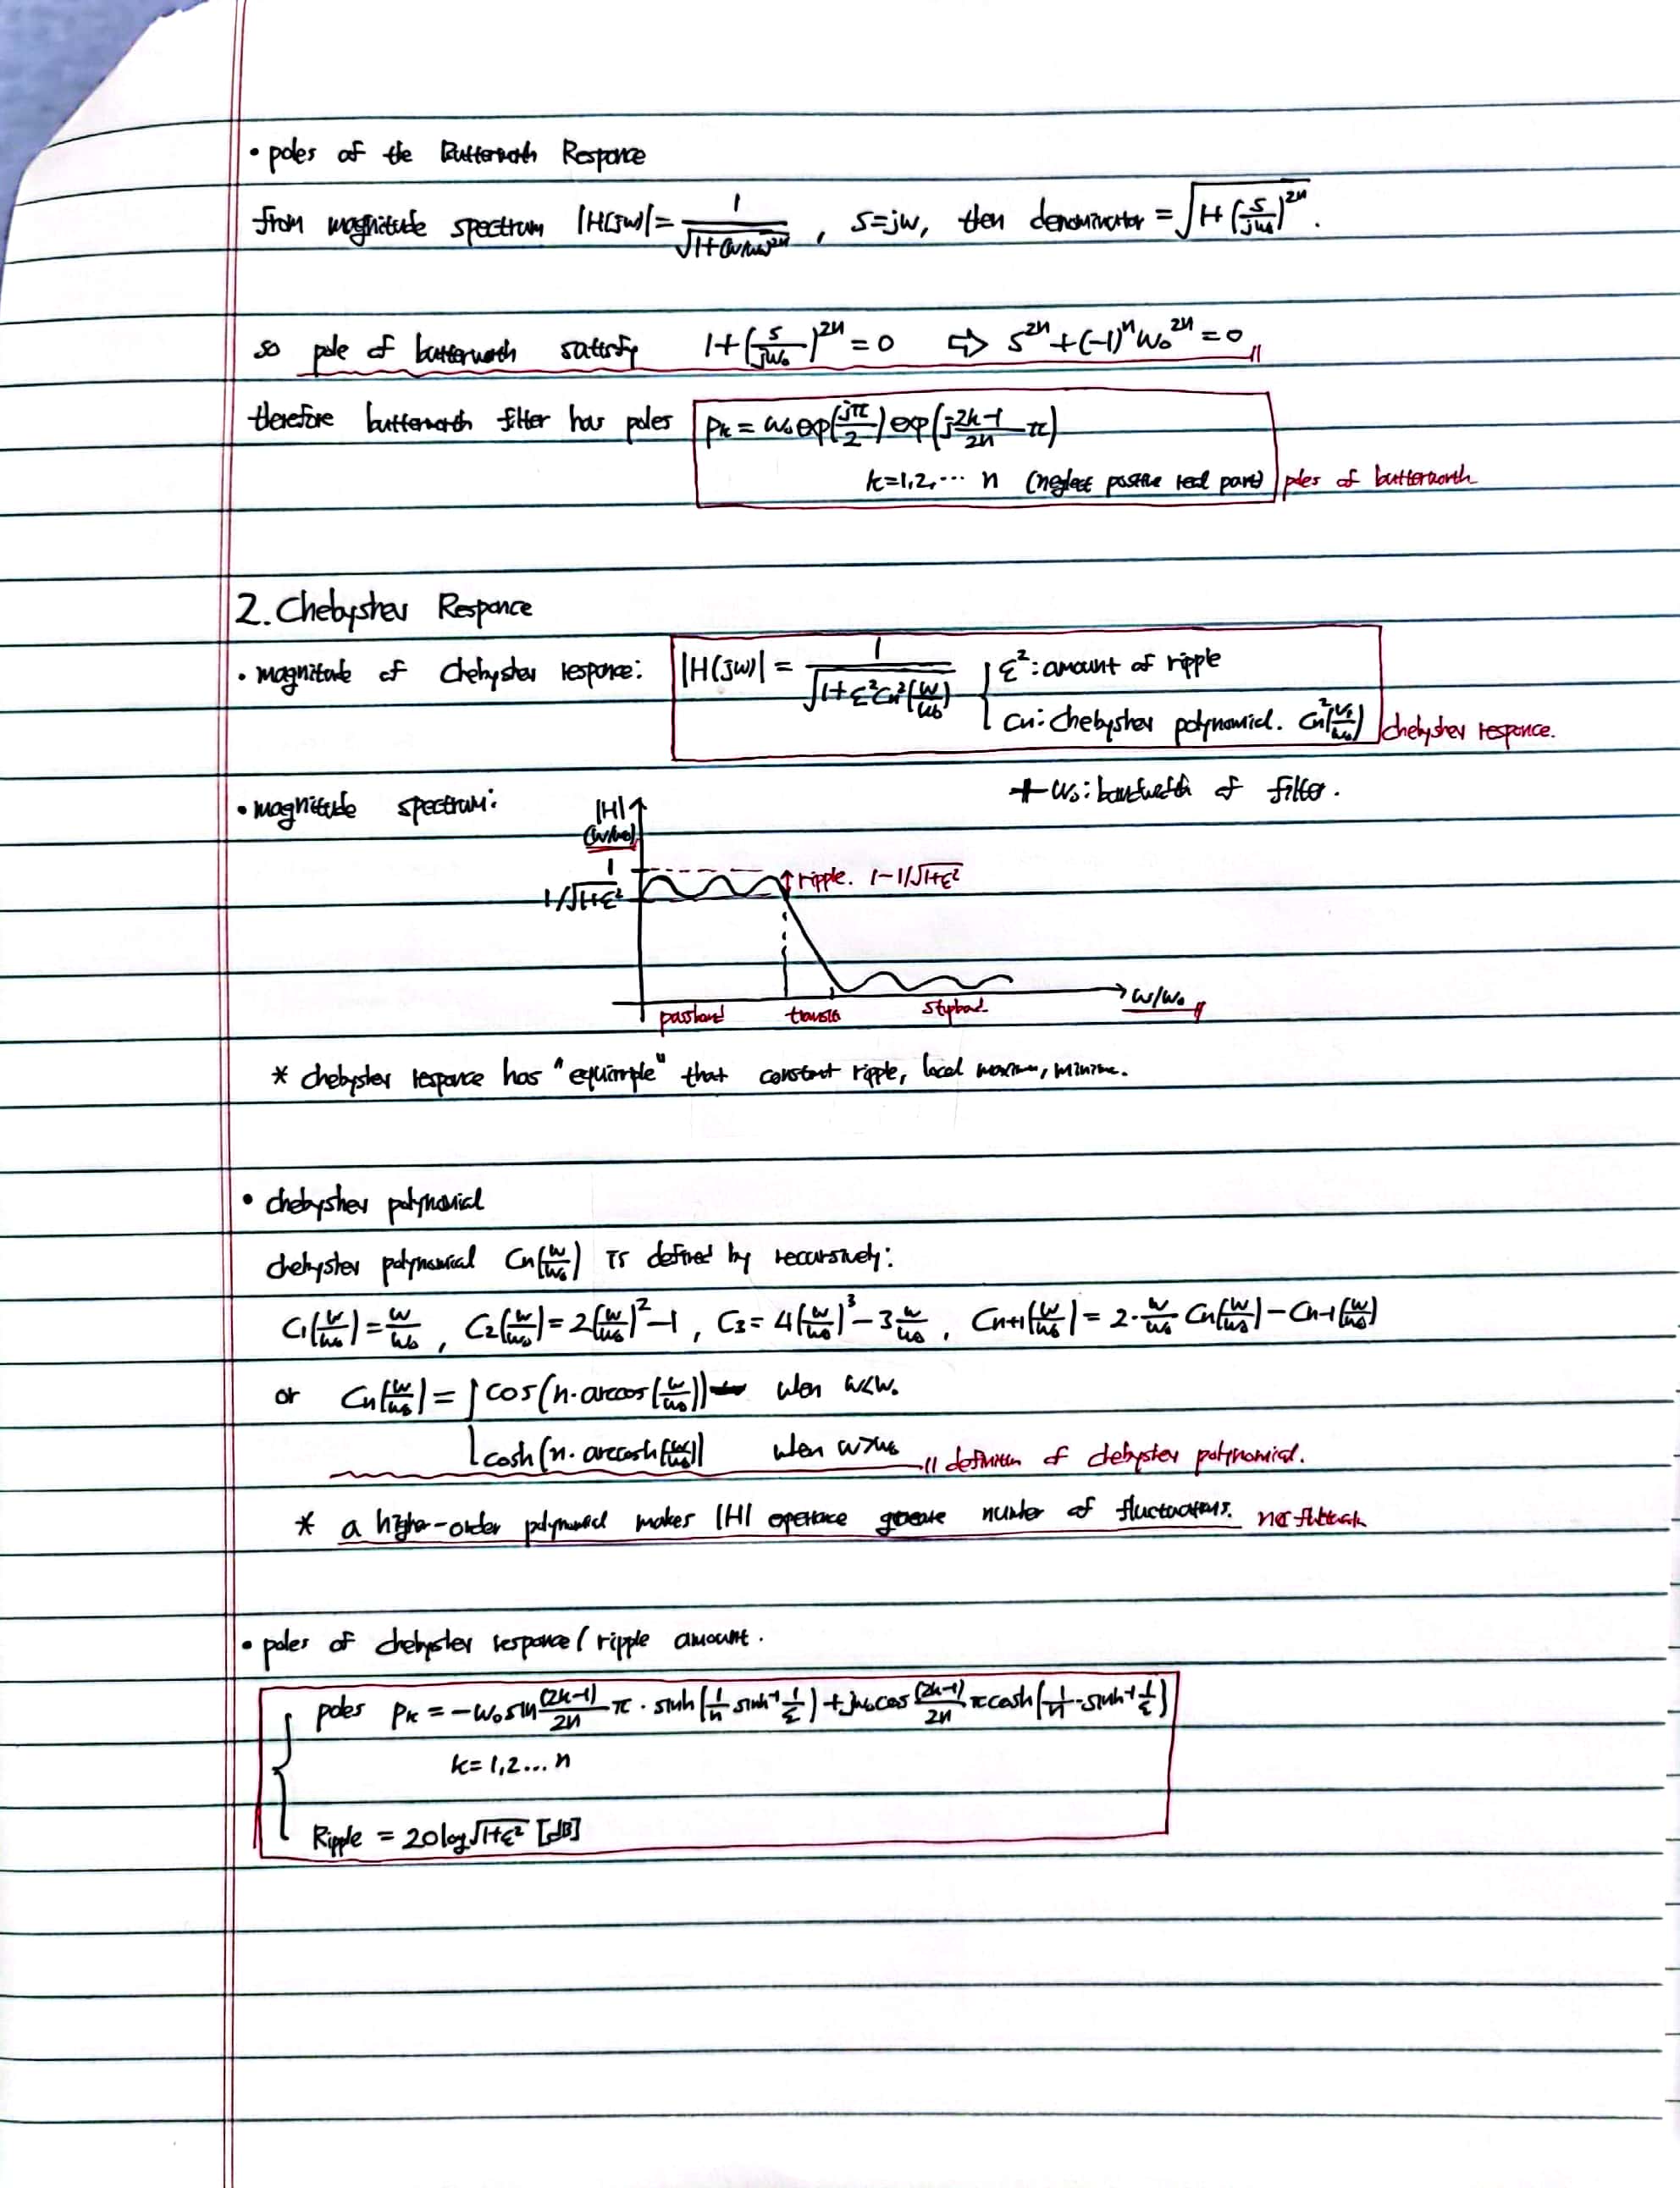 • poles of the Butterworth Responce
from magnitude spectrum |H(jw)| = 1/√(1+(w/w₀)²ⁿ) , s=jw, then denominator = √(1+(s/jw₀)²ⁿ) .
so pole of butterworth satisfy 1+(s/jw₀)²ⁿ = 0 ⇨ s²ⁿ+(-1)ⁿw₀²ⁿ = 0 //
therefore butterworth filter has poles Pk = w₀ exp(jπ/2) exp(j (2k-1)/2n π)
k=1,2,⋯ n (neglect positive real part) poles of butterworth
2. Chebyshev Responce
• magnitude of chebyshev responce: |H(jw)| = 1/√(1+ε²Cn²(w/w₀)) { ε²: amount of ripple
Cn: chebyshev polynomial. Cn²(w/w₀) chebyshev responce.
+ w₀: bandwidth of filter.
• magnitude spectrum: |H|
(w/w₀)
1
ripple. 1-1/√(1+ε²)
1/√(1+ε²)
w/w₀ //
passband stopband
* chebyshev responce has "equiripple" that constant ripple, local maxima, minima.
• chebyshev polynomial
chebyshev polynomial Cn(w/w₀) is defined by recursively:
C₁(w/w₀) = w/w₀ , C₂(w/w₀) = 2(w/w₀)²-1 , C₃ = 4(w/w₀)³-3 w/w₀ , Cn+1(w/w₀) = 2· w/w₀ Cn(w/w₀)-Cn-1(w/w₀)
or Cn(w/w₀) = { cos(n·arccos(w/w₀)) when w<w₀
cosh(n·arccosh(w/w₀)) when w>w₀ // definition of chebyshev polynomial.
* a higher-order polynomial makes |H| number of fluctuations.
• poles of chebyshev responce / ripple amount.
poles Pk = -w₀ sin (2k-1)/2n π · sinh(1/n sinh⁻¹ 1/ε) + jw₀ cos (2k-1)/2n π cosh(1/n · sinh⁻¹ 1/ε)
k= 1,2...n
Ripple = 20log√(1+ε²) [dB]